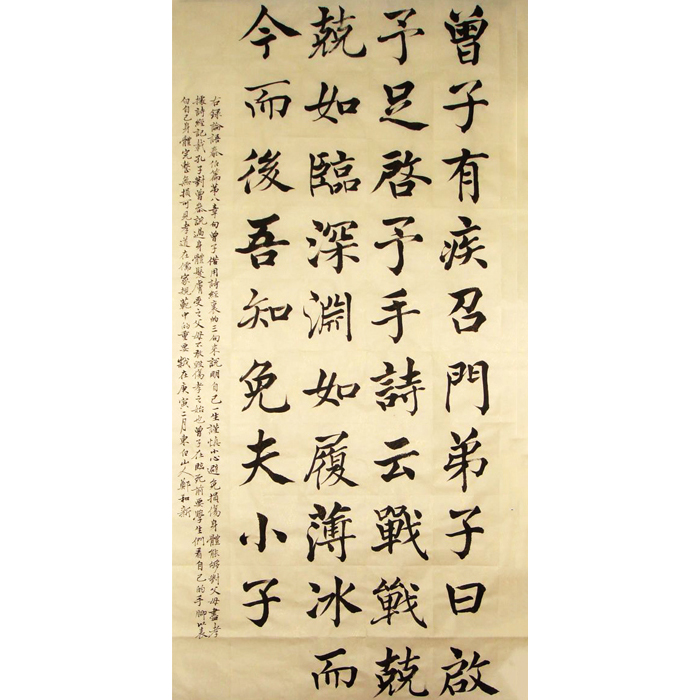 曾子有疾召門弟子曰啟
予足啓予手詩云戰戰兢
兢如臨深淵如履薄冰而
今而後吾知免夫小子
右錄論語泰伯篇第八章句曾子借用詩經裏的三句來說明自己一生謹慎小心避免損傷身體能夠對父母盡孝
據詩經記載孔子對曾參說過身體髮膚受之父母不敢毀傷孝之始也曾子在臨死前要學生們看自己的手腳以表
白自己身體完整無損可見孝道在儒家規範中的重要 在庚寅二月東白山人鄭和新